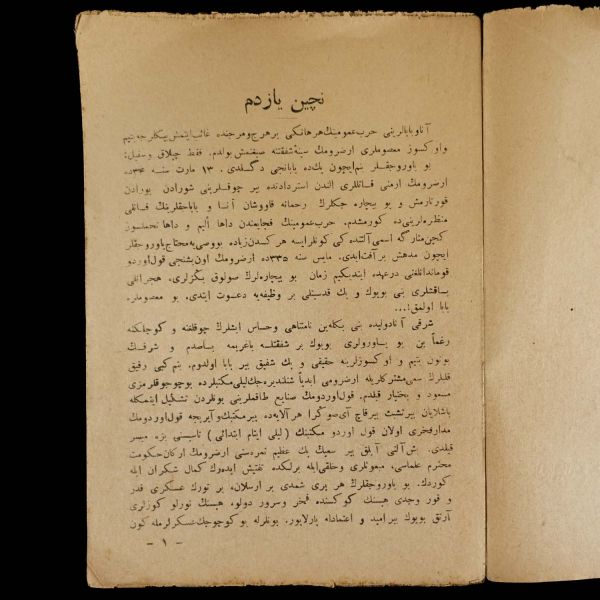 نچین یازدم
آناوبابالرینی حرب عمومینك هرهانكی برهرج و مرجنده غائب ایتمش بیكلرجه یتیم
واوكسوز معصوملری ارضرومك سینهٔ شفقتنه صیغنمش بولدم. فقط چپلاق وسفیل؛
بو یاوروجقلر بنم ایچون یك ده یابانجی دكسلدی. ١٣ مارت سنه ٣٣٤ ده
ارضرومك ارمنی قاتللری الندن استردادنده بر چوقلرینی شورادن بورادن
قورتارمش و بو بیچاره جكلرك رحمانه قاووشان آنا و باباجقلرینك قانلی
منظره لرینی ده كورمشدم. حرب عمومینك فجایعندن داها ألیم و داها تحملسوز
ایچون مدهش بر آفت ایدی. مایس سنه ٣٣٥ ده ارضرومك اون بشنجی قول اوردو
قوماندانلغنی درعهده ایتدیكیم زمان بو بیچاره لرك صولوق بكزلری، هجرانلی
باقشلری بنی بویوك و یك قدسیتلی بر وظیفه یه دعوت ایتدی. بو معصوملره
بابا اولمق!...
شرقی آنادولیده بنی بكله ین نامتناهی وحساس ایشلرك چوقلغنه و كوجلكنه
رغماً بن بو یاورولری بویوك بر شفقتله باغریمه باصدم و شرقك
بوتون یتیم و اوكسوزلرینه حقیقی و یك شفیق بر بابا اولدوم. بنم كبی رقیق
مسعود و بختیار قیلدم. قول اوردومك صنایع طاقملرینی بونلردن تشكیل ایتمكله
باشلایان بر تشبث بر قاچ آی صوكرا هر آلایه ده بر مكتب و آیریجه قول اوردومك
مدار فخری اولان قول اوردو مكتبنك (لیلی ایتام ابتدائی) تأسیسنی بزه میسر
قیلدی. بش آلتی آیلق بر سعیك یك عظیم ثمره سنی ارضرومك اركان حكومت
محترم علماسی، مبعوثلری وخلقی ایله برلكده تفتیش ایده رك كمال شكران ایله
كوردك. بو یاوروجقلرك هر بری شمدی بر ارسلان، بر تورك عسكری قدر
و قور وجدی هپسنك كوكسنده فخر وسرور دولو، هپسنك نورلو كوزلری
آرتق بویوك بر امید و اعتمادله پارلایور. بونلرله بو كوچوجك عسكرلرمله كون
- ١ -